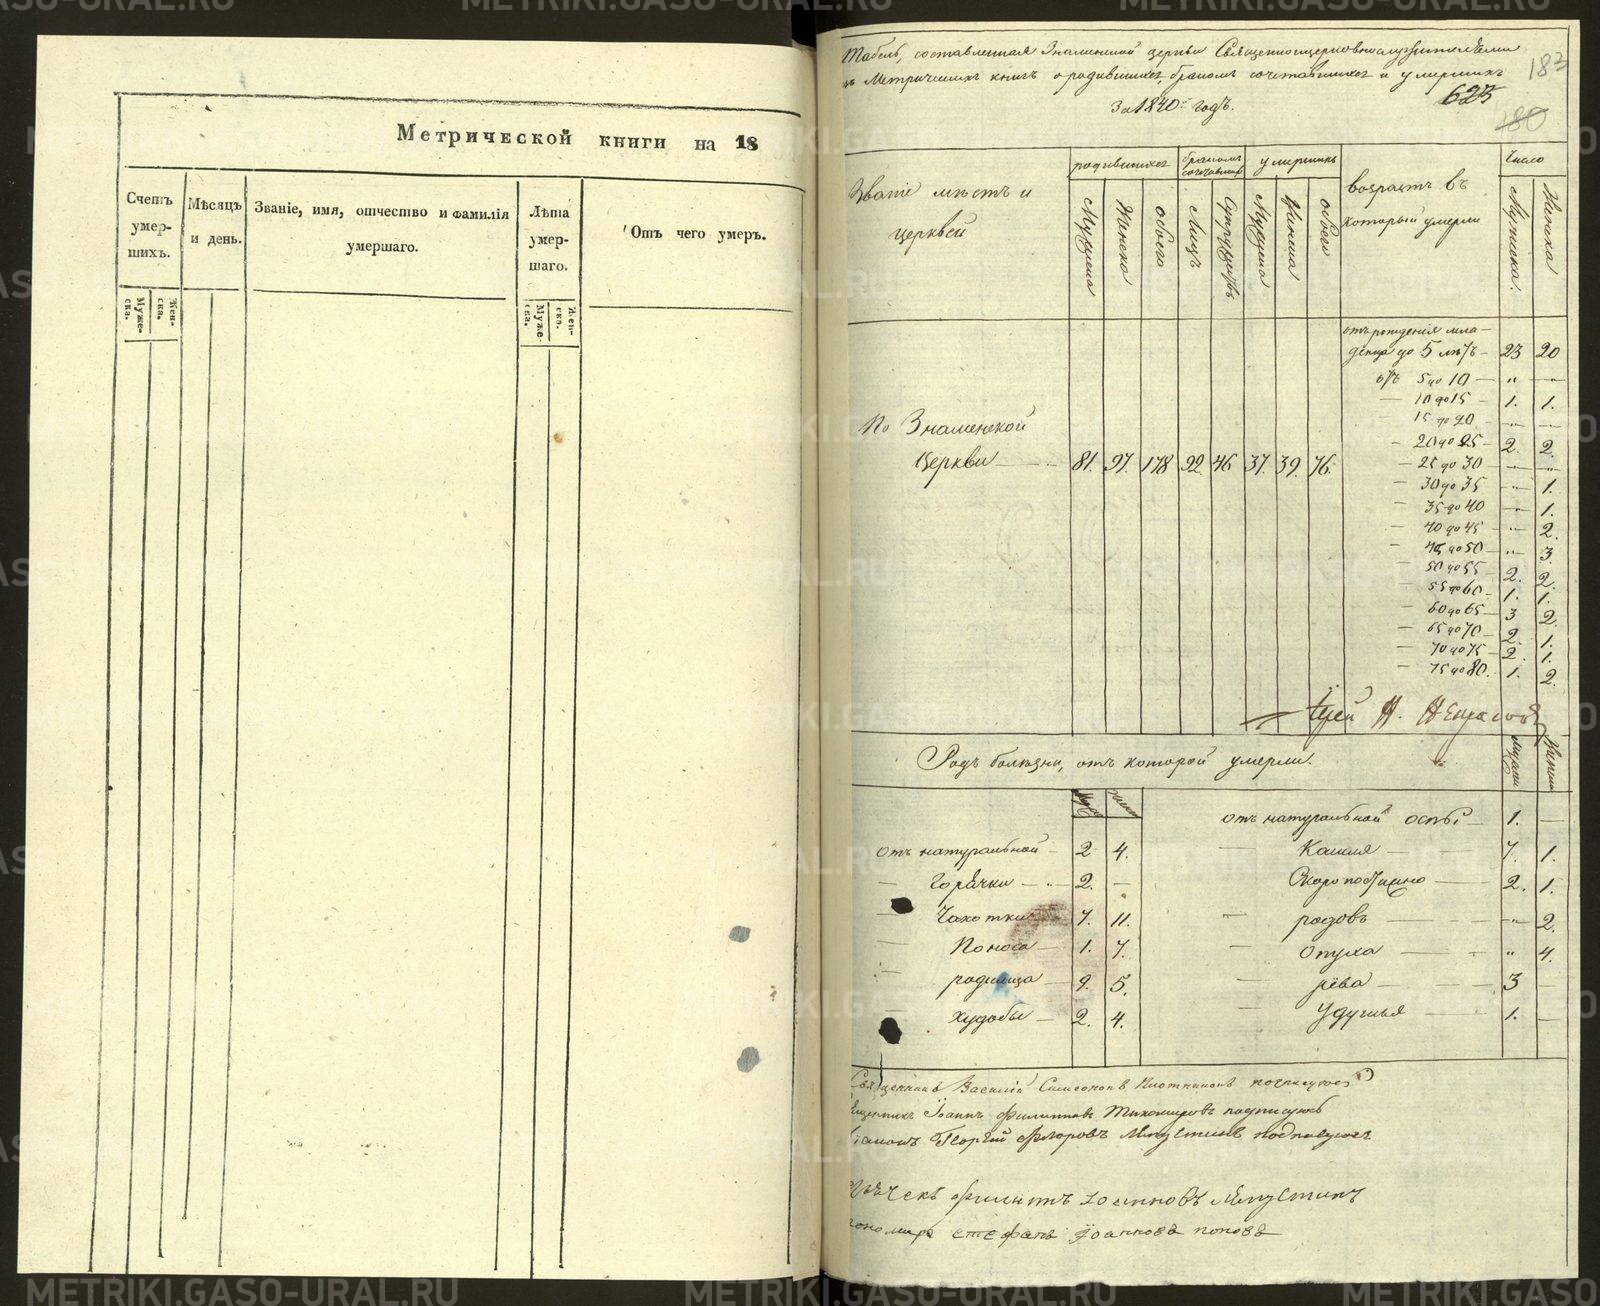 Метрической книги на 18
Счетъ умер-шихъ.
Муже-ска.
Жен-ска.
Мѣсяцъ и день.
Званіе, имя, отчество и фамилія умершаго.
Лѣта умер-шаго.
Муже-ска.
Жен-ска.
Отъ чего умеръ.
Табель, составленная Знаменской церкви Священноцерковнослужителями
изъ Метрическихъ книгъ о родившихся бракомъ сочетавшихся и умершихъ
За 1840й годъ.
183
623
180
Званіе мѣстъ и церквей
родившихся
Мужеска
Женска
обоего
бракомъ сочетавшихся
Лицъ
Супружествъ
умершихъ
Мужеска
Женска
обоего
возрастъ въ который умерли
Число
Мужеска.
Женска
отъ рожденія мла-
денца до 5 лѣтъ - 23 20
отъ 5 до 10 — " —
— 10 до 15 - 1. 1.
15 до 20 - " —
- 20 до 25 - 2. 2.
- 25 до 30 — " "
- 30 до 35 — " 1.
35 до 40 — " 1.
- 40 до 45 " 2.
- 45 до 50 - " 3.
50 до 55 - 2. 2.
- 55 до 60 - 1. 1.
- 60 до 65 - 3 2.
- 65 до 70 - 2. 1.
- 70 до 75 - 2. 1.
- 75 до 80. 1. 2.
По Знаменской
Церкви — 81. 97. 178 92 46 37. 39. 76.
Іерей Н.
Родъ болѣзни, отъ которой умерли.
отъ натуральной - 2 4.
— Горячки - 2. —
— Чахотки 7. 11.
— Поноса - 1. 7.
родимца - 9. 5.
худобы — 2. 4.
отъ натуральной оспы — 1. —
— Кашля — 7. 1.
Скоропостижно — 2. 1.
родовъ — " 2.
— опуха — " 4.
— рева — 3 —
— удушья — 1. —
Священникъ Василій Симеоновъ Плотниковъ подписуюсь
Іоаннъ Филипповъ Тихомировъ подписуюсь
Георгій Флоровъ подписуюсь
Филиппъ Іоанновъ
Стефанъ Іоанновъ Поповъ
METRIKI.GASO-URAL.RU